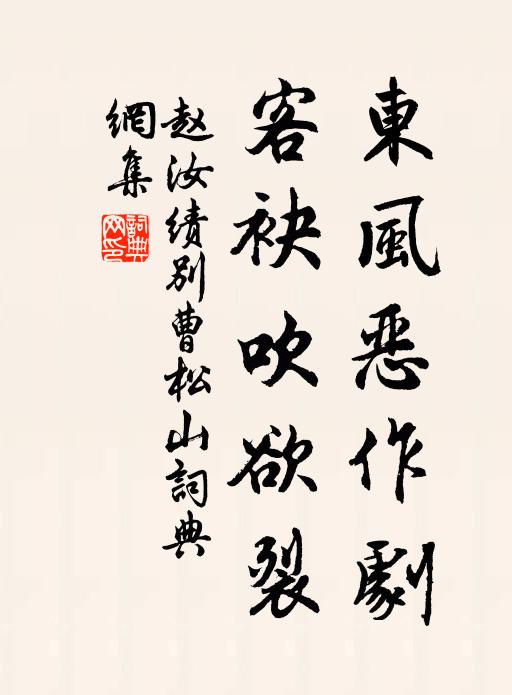 東風恶作劇
客袂吹欲裂
赵汝绩别曹松山詞典
網集
詞典
网印